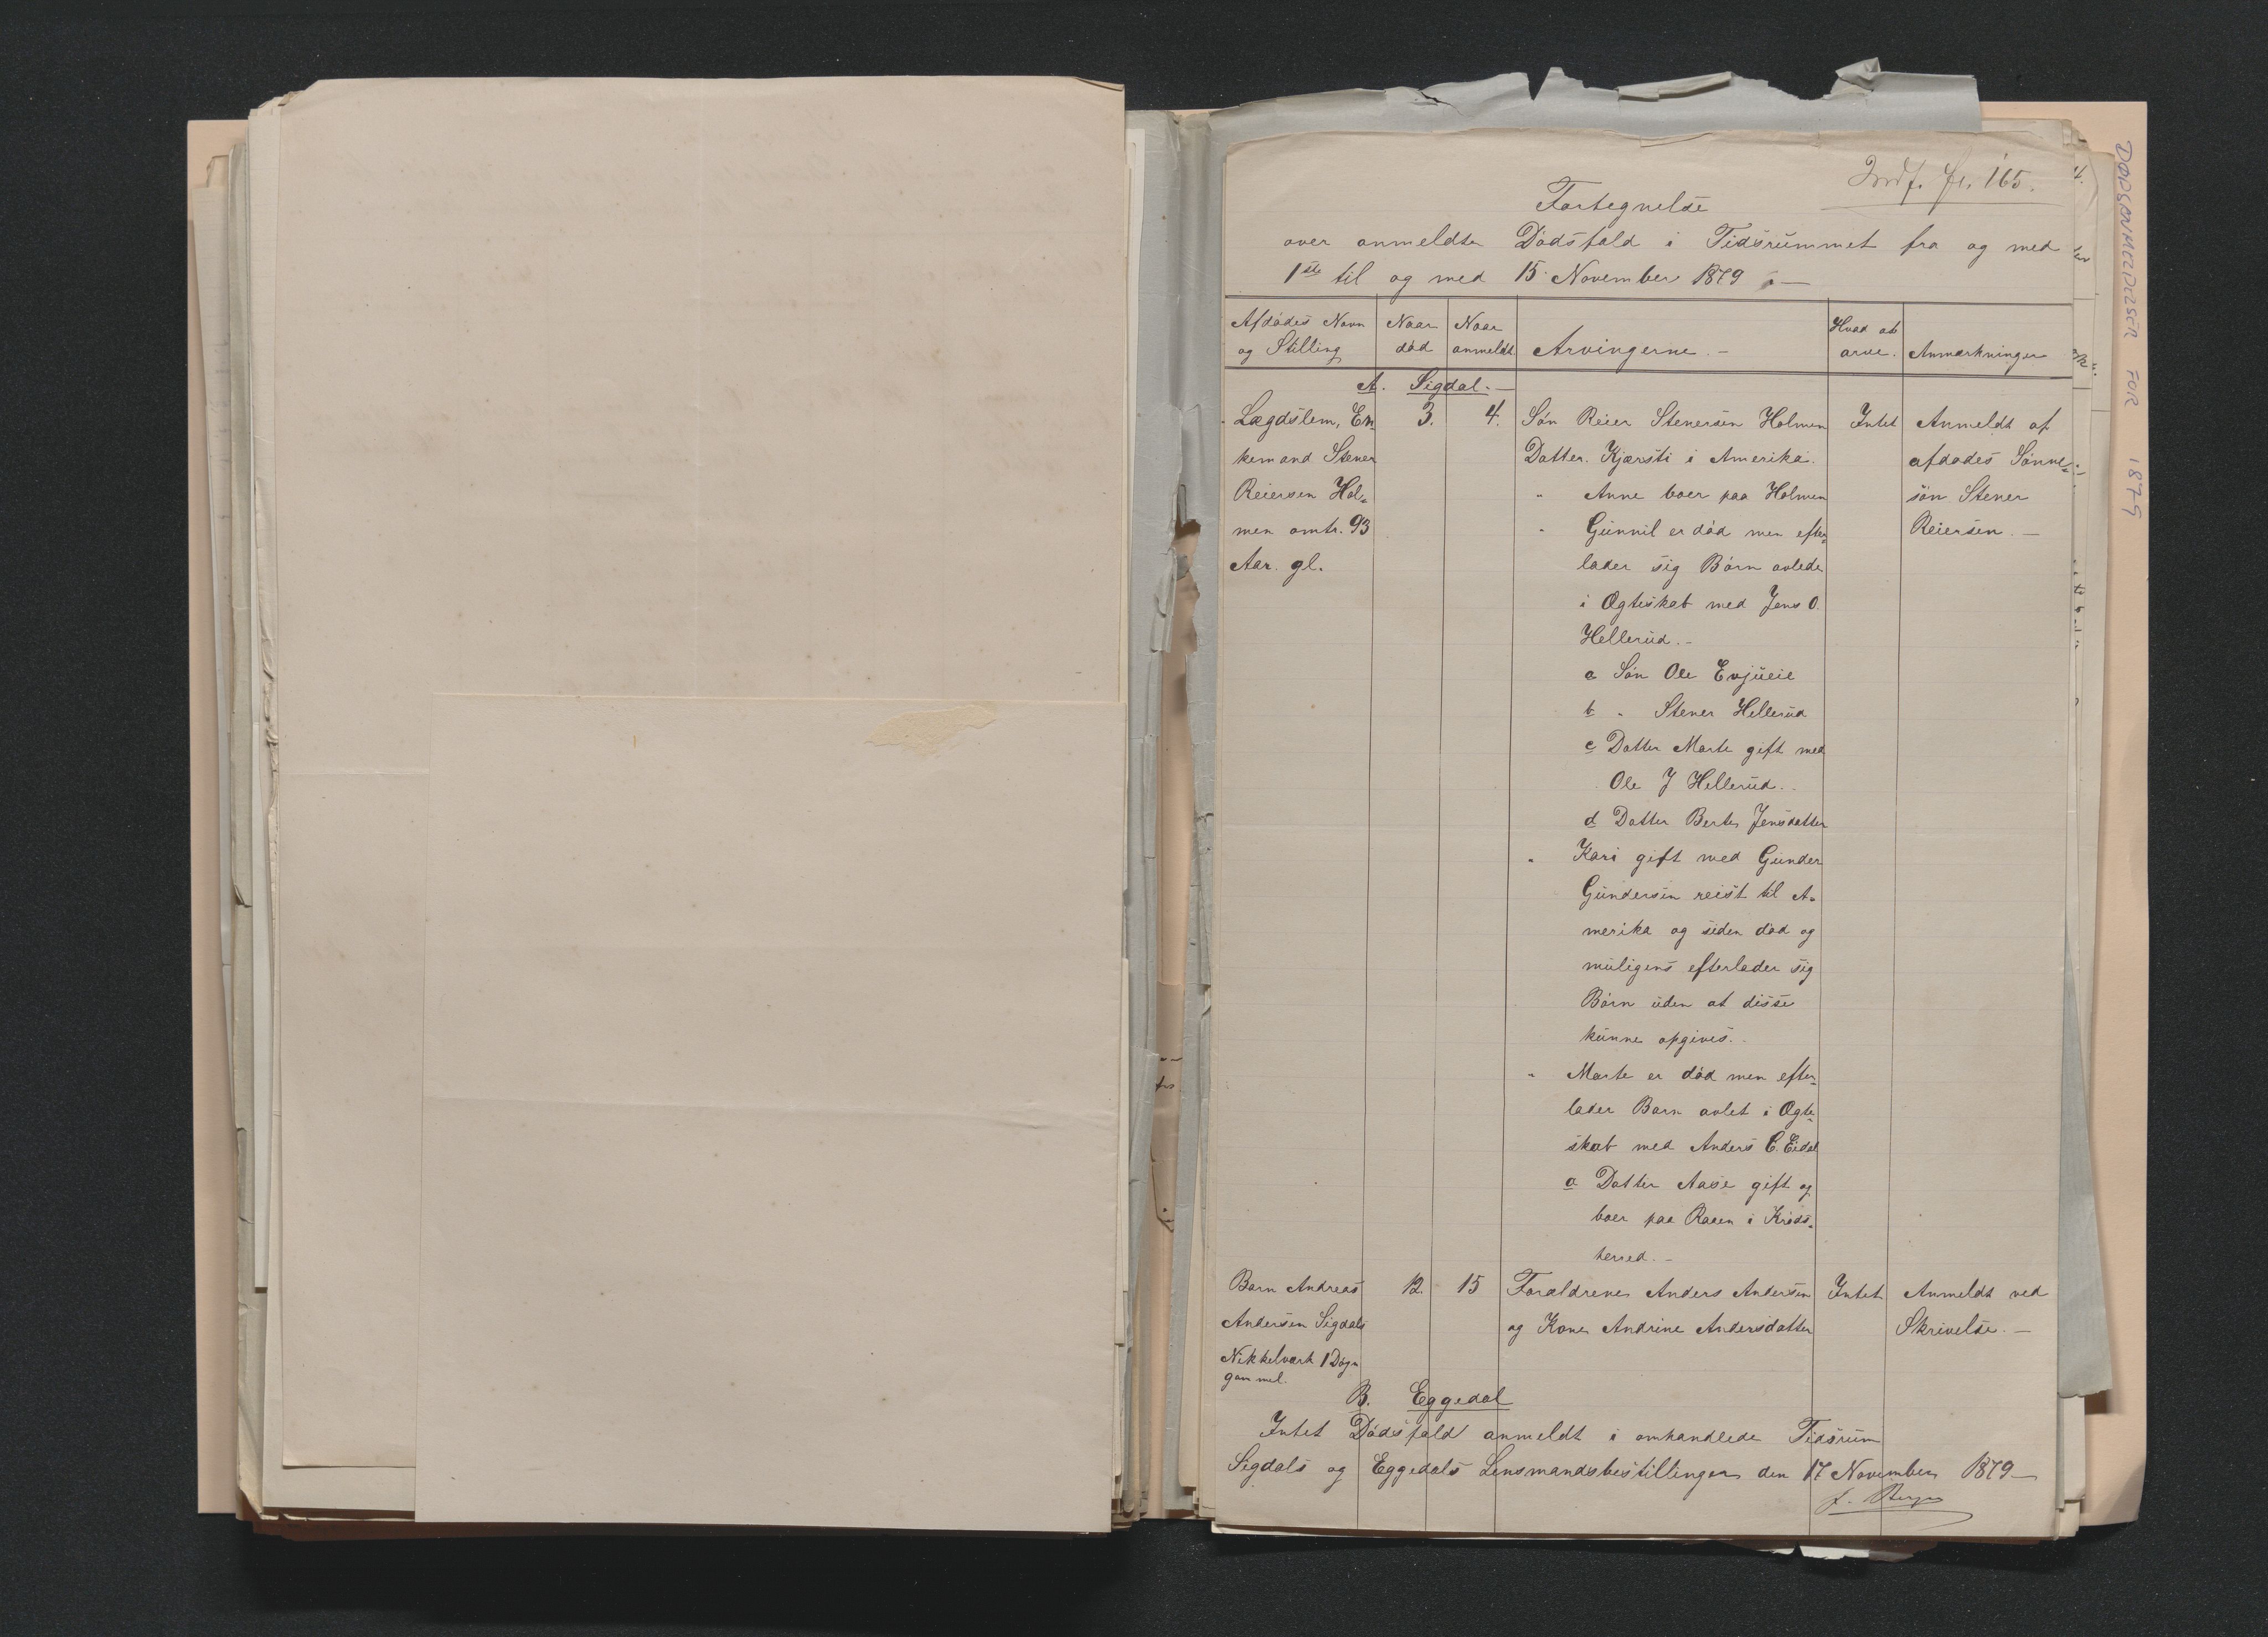 Indf. fl. 165.
Fortegnelse
over anmeldte Dödsfald i Tidsrummet fra og med
1ste til og med 15 November 1879
Afdödes Navn og Stilling
Naar död
Naar anmeldt
Arvingerne.-
Hvad at arve.
Anmærkninger
A. Sigdal.-
Lægdslem, En- 3. 4. Sön Reier Stenersen Holmen Intet Anmeldt af
kemand Stener Datter. Kjærsti i Amerika. afdødes Sönne-
Reiersen Hol- " Anne boer paa Holmen sön Stener
men omtr. 93 " Gunnil er död men efter- Reiersen.-
Aar. gl. lader sig Börn avlede
i Ægteskab med Jens O.
Hellerud.-
a Sön Ole Evjueie
b " Stener Hellerud
c Datter Marte gift med
Ole J Hellerud..
d Datter Berte Jensdatter
" Kari gift med Gunder
Gundersen reist til A-
merika og siden död og
muligens efterlader sig
Börn uden at disse
kunne opgives.-
" Marte er död men efter-
lader Barn avlet i Ægte-
skab med Anders C. Eidal
a Datter Aase gift og
boer paa Raaen i Kröds-
herred.-
Barn Andreas 12. 15 Forældrene Anders Andersen Intet Anmeldt ved
Andersen Sigdals og Kone Andrine Andersdatter Skrivelse.-
Nikkelværk 1 Dögn
gammel.
B. Eggedal
Intet Dödsfald anmeldt i omhandlede Tidsrum
Sigdals og Eggedals Lensmandsbestillinger den 17 November 1879
DØDSANMELDELSER FOR 1879